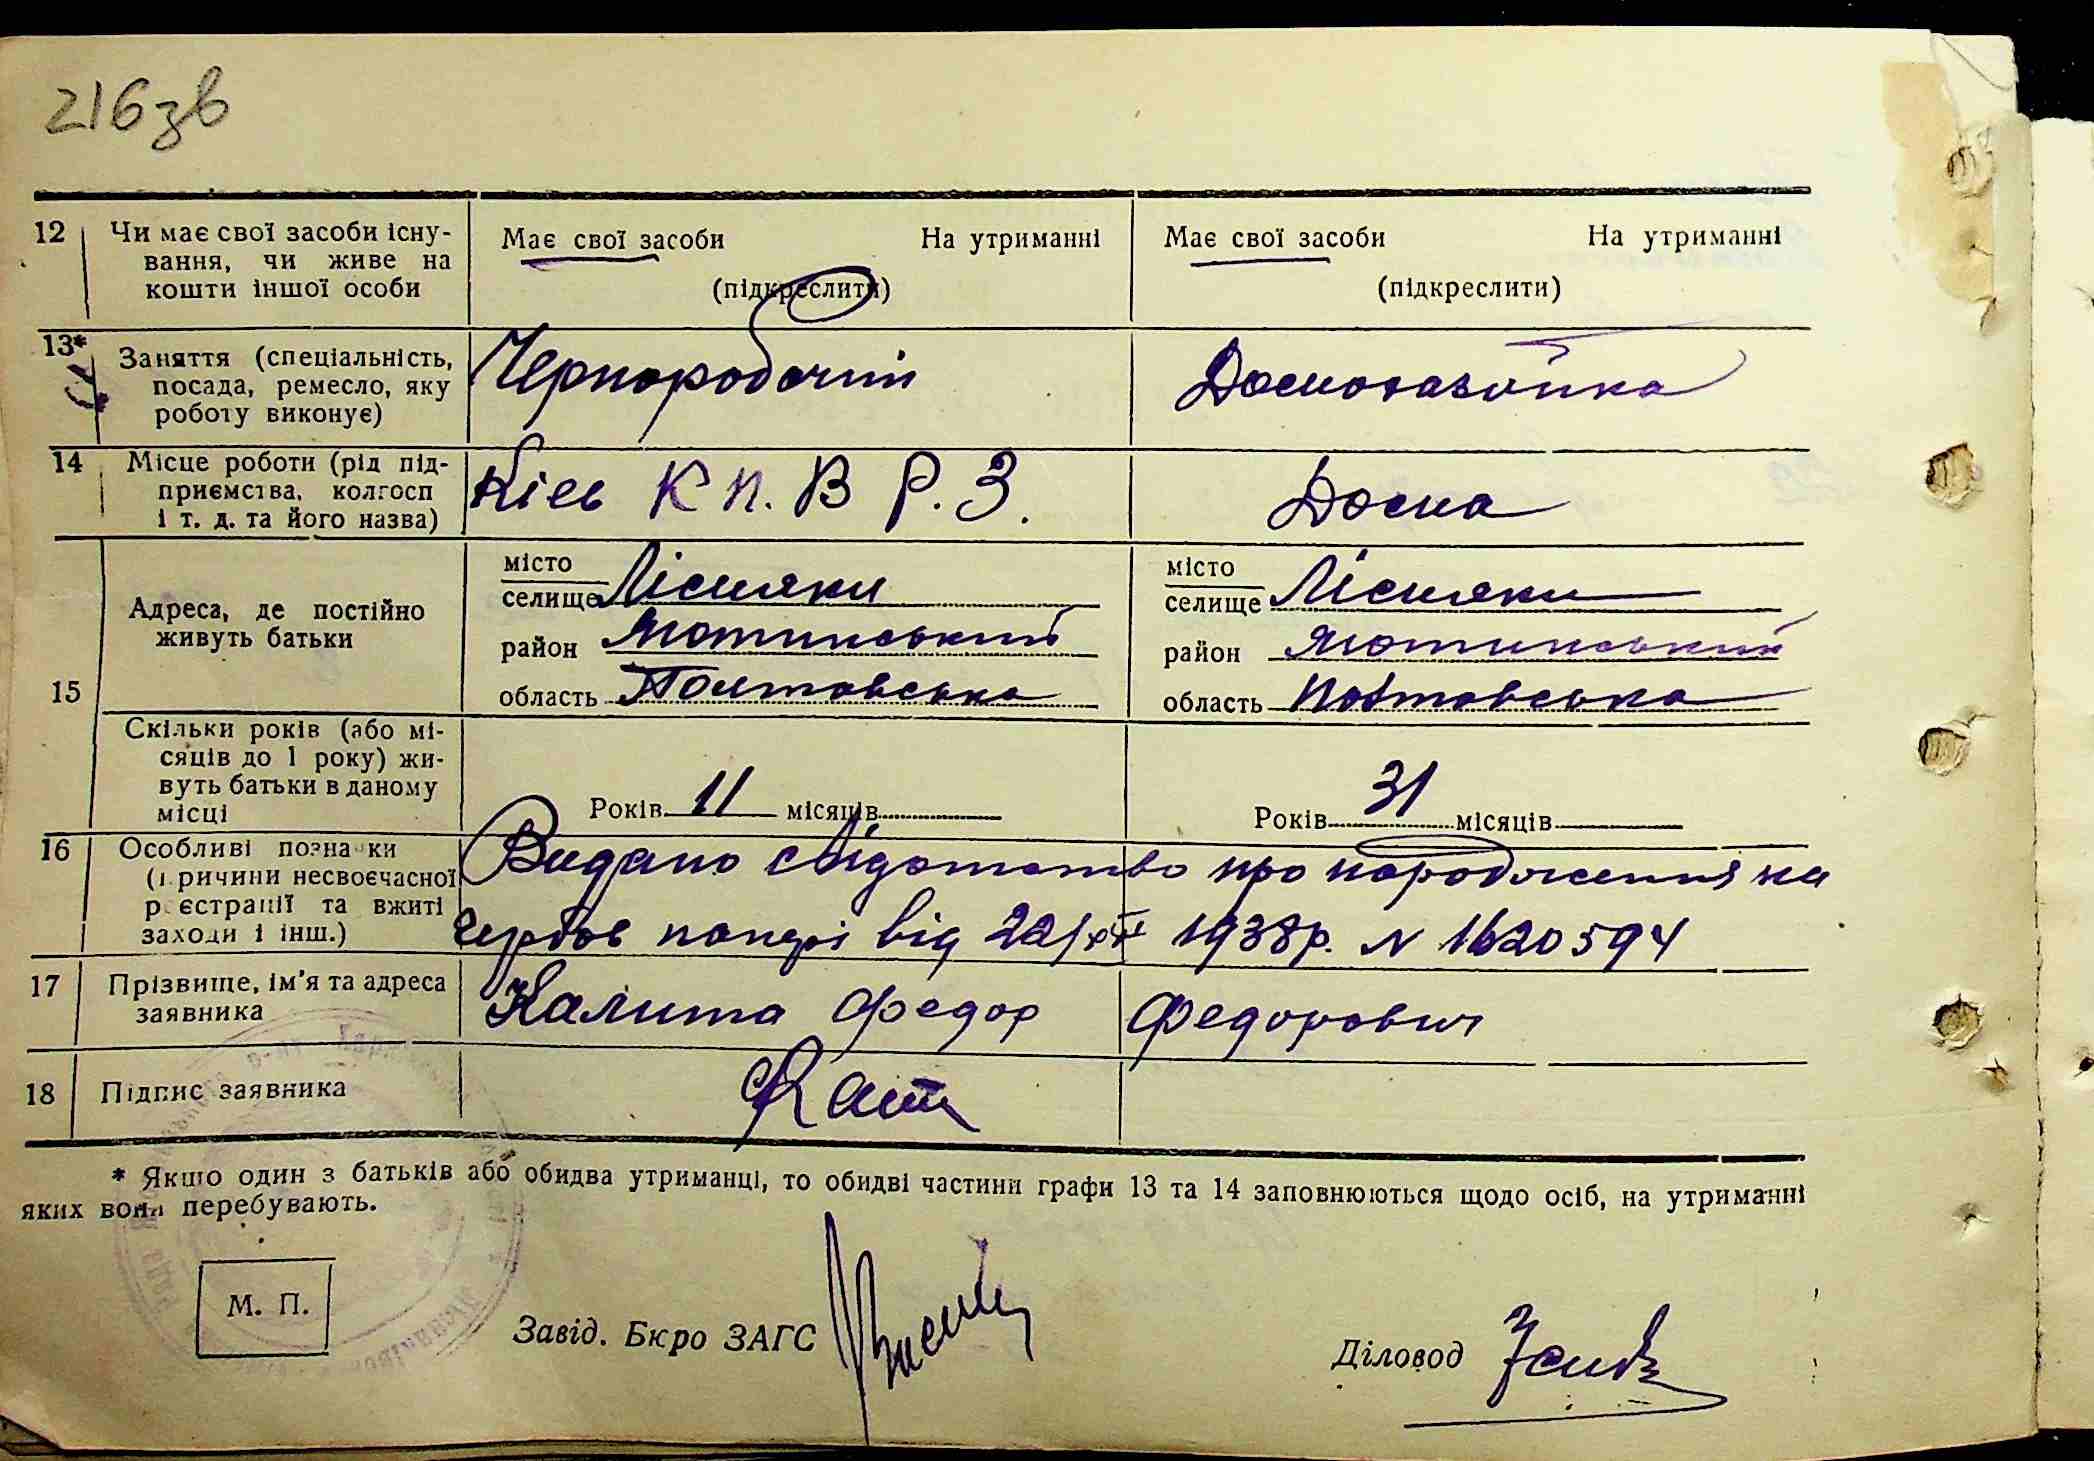 216зв
12 Чи має свої засоби існу-
вання, чи живе на
кошти іншої особи
Має свої засоби На утриманні
(підкреслити)
Має свої засоби На утриманні
(підкреслити)
13* Заняття (спеціальність,
посада, ремесло, яку
роботу виконує)
Черноробочий
Домохазяйка
14 Місце роботи (рід під-
приємства, колгосп
і т. д. та його назва)
Кієв К П. В Р. З.
Дома
15 Адреса, де постійно
живуть батьки
місто
селище Лісняки
район Яготинський
область Полтавська
місто
селище Лісняки
район Яготинський
область Полтавська
Скільки років (або мі-
сяців до 1 року) жи-
вуть батьки в даному
місці
Років 11 місяців
Років 31 місяців
16 Особливі познаки
(причини несвоєчасної
реєстрації та вжиті
заходи і інш.)
Видано свідотство про народження на
гербов папері від 22/XII 1938р. N 1620594
17 Прізвище, ім'я та адреса
заявника
Калита Федор Федорович
18 Підпис заявника
* Якщо один з батьків або обидва утриманці, то обидві частини графи 13 та 14 заповнюються щодо осіб, на утриманні
яких вони перебувають.
М. П.
Завід. Бюро ЗАГС
Діловод